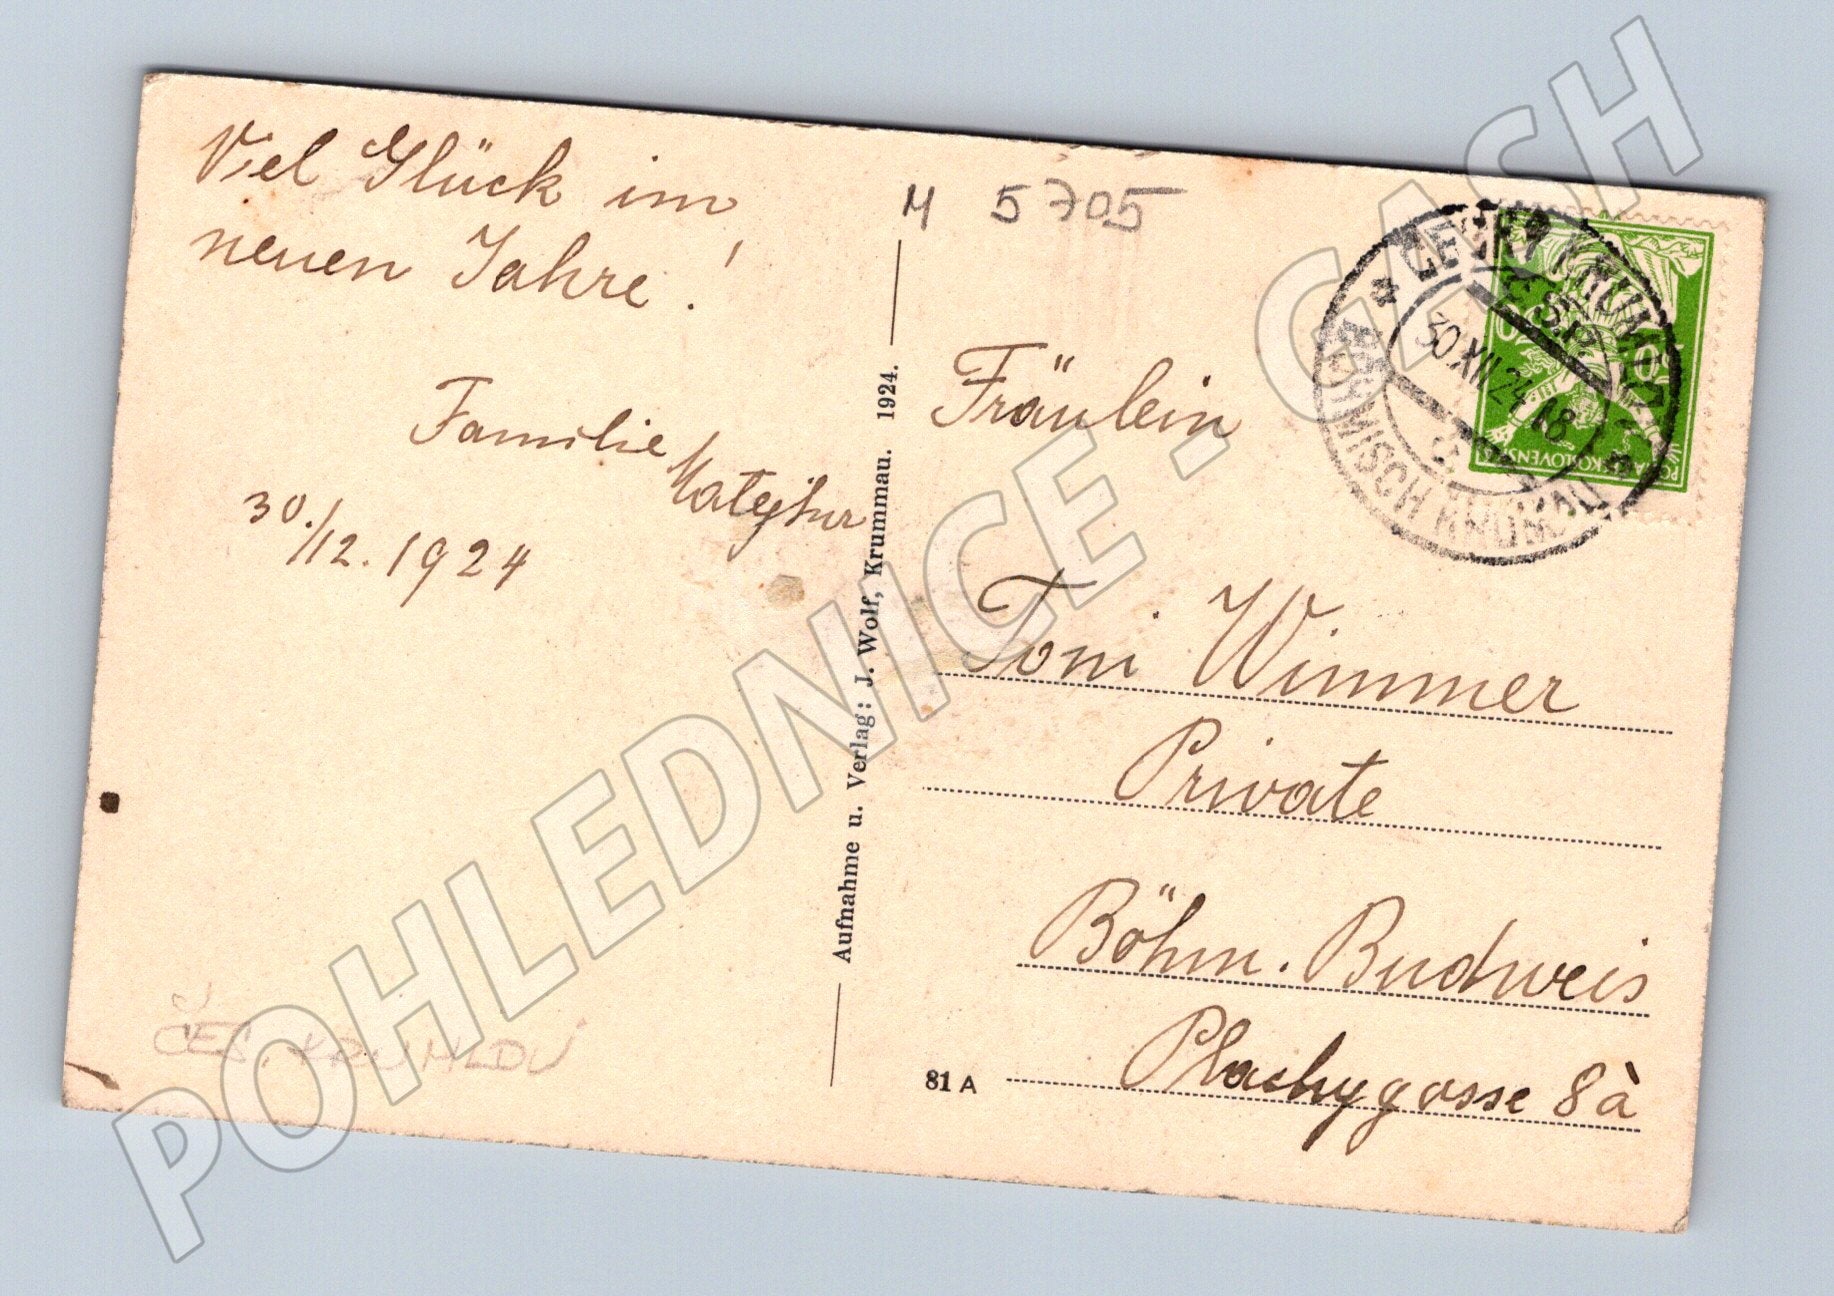 Viel Glück im
neuen Jahre!
Familie
30./12. 1924
M 5705
Aufnahme u. Verlag: J. Wolf, Krummau. 1924.
* ČESKÝ KRUMLOV *
Č.S.P.
30.XII.24.18
BÖHMISCH KRUMAU
Fräulein
Toni Wimmer
Private
Böhm. Budweis
Plachygasse 8à
81 A
ČES. KRUMLOV
POHLEDNICE - GASH